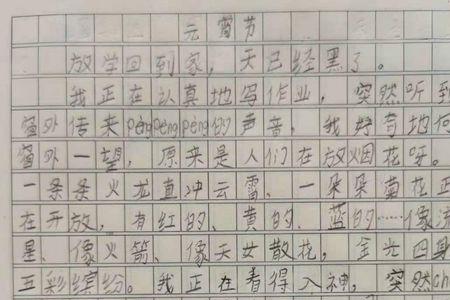 元宵节
放学回到家，天已经黑了。
我正在认真地写作业，突然听到
窗外传来pēngpēngpēng的声音，我好奇地向
窗外一望，原来是人们在放烟花呀。
一条条火龙直冲云霄、一朵朵菊花正
在开放，有红的、黄的、蓝的……像流
星、像火箭、像天女散花，金光四射
五彩缤纷。我正在看得入神，突然ch